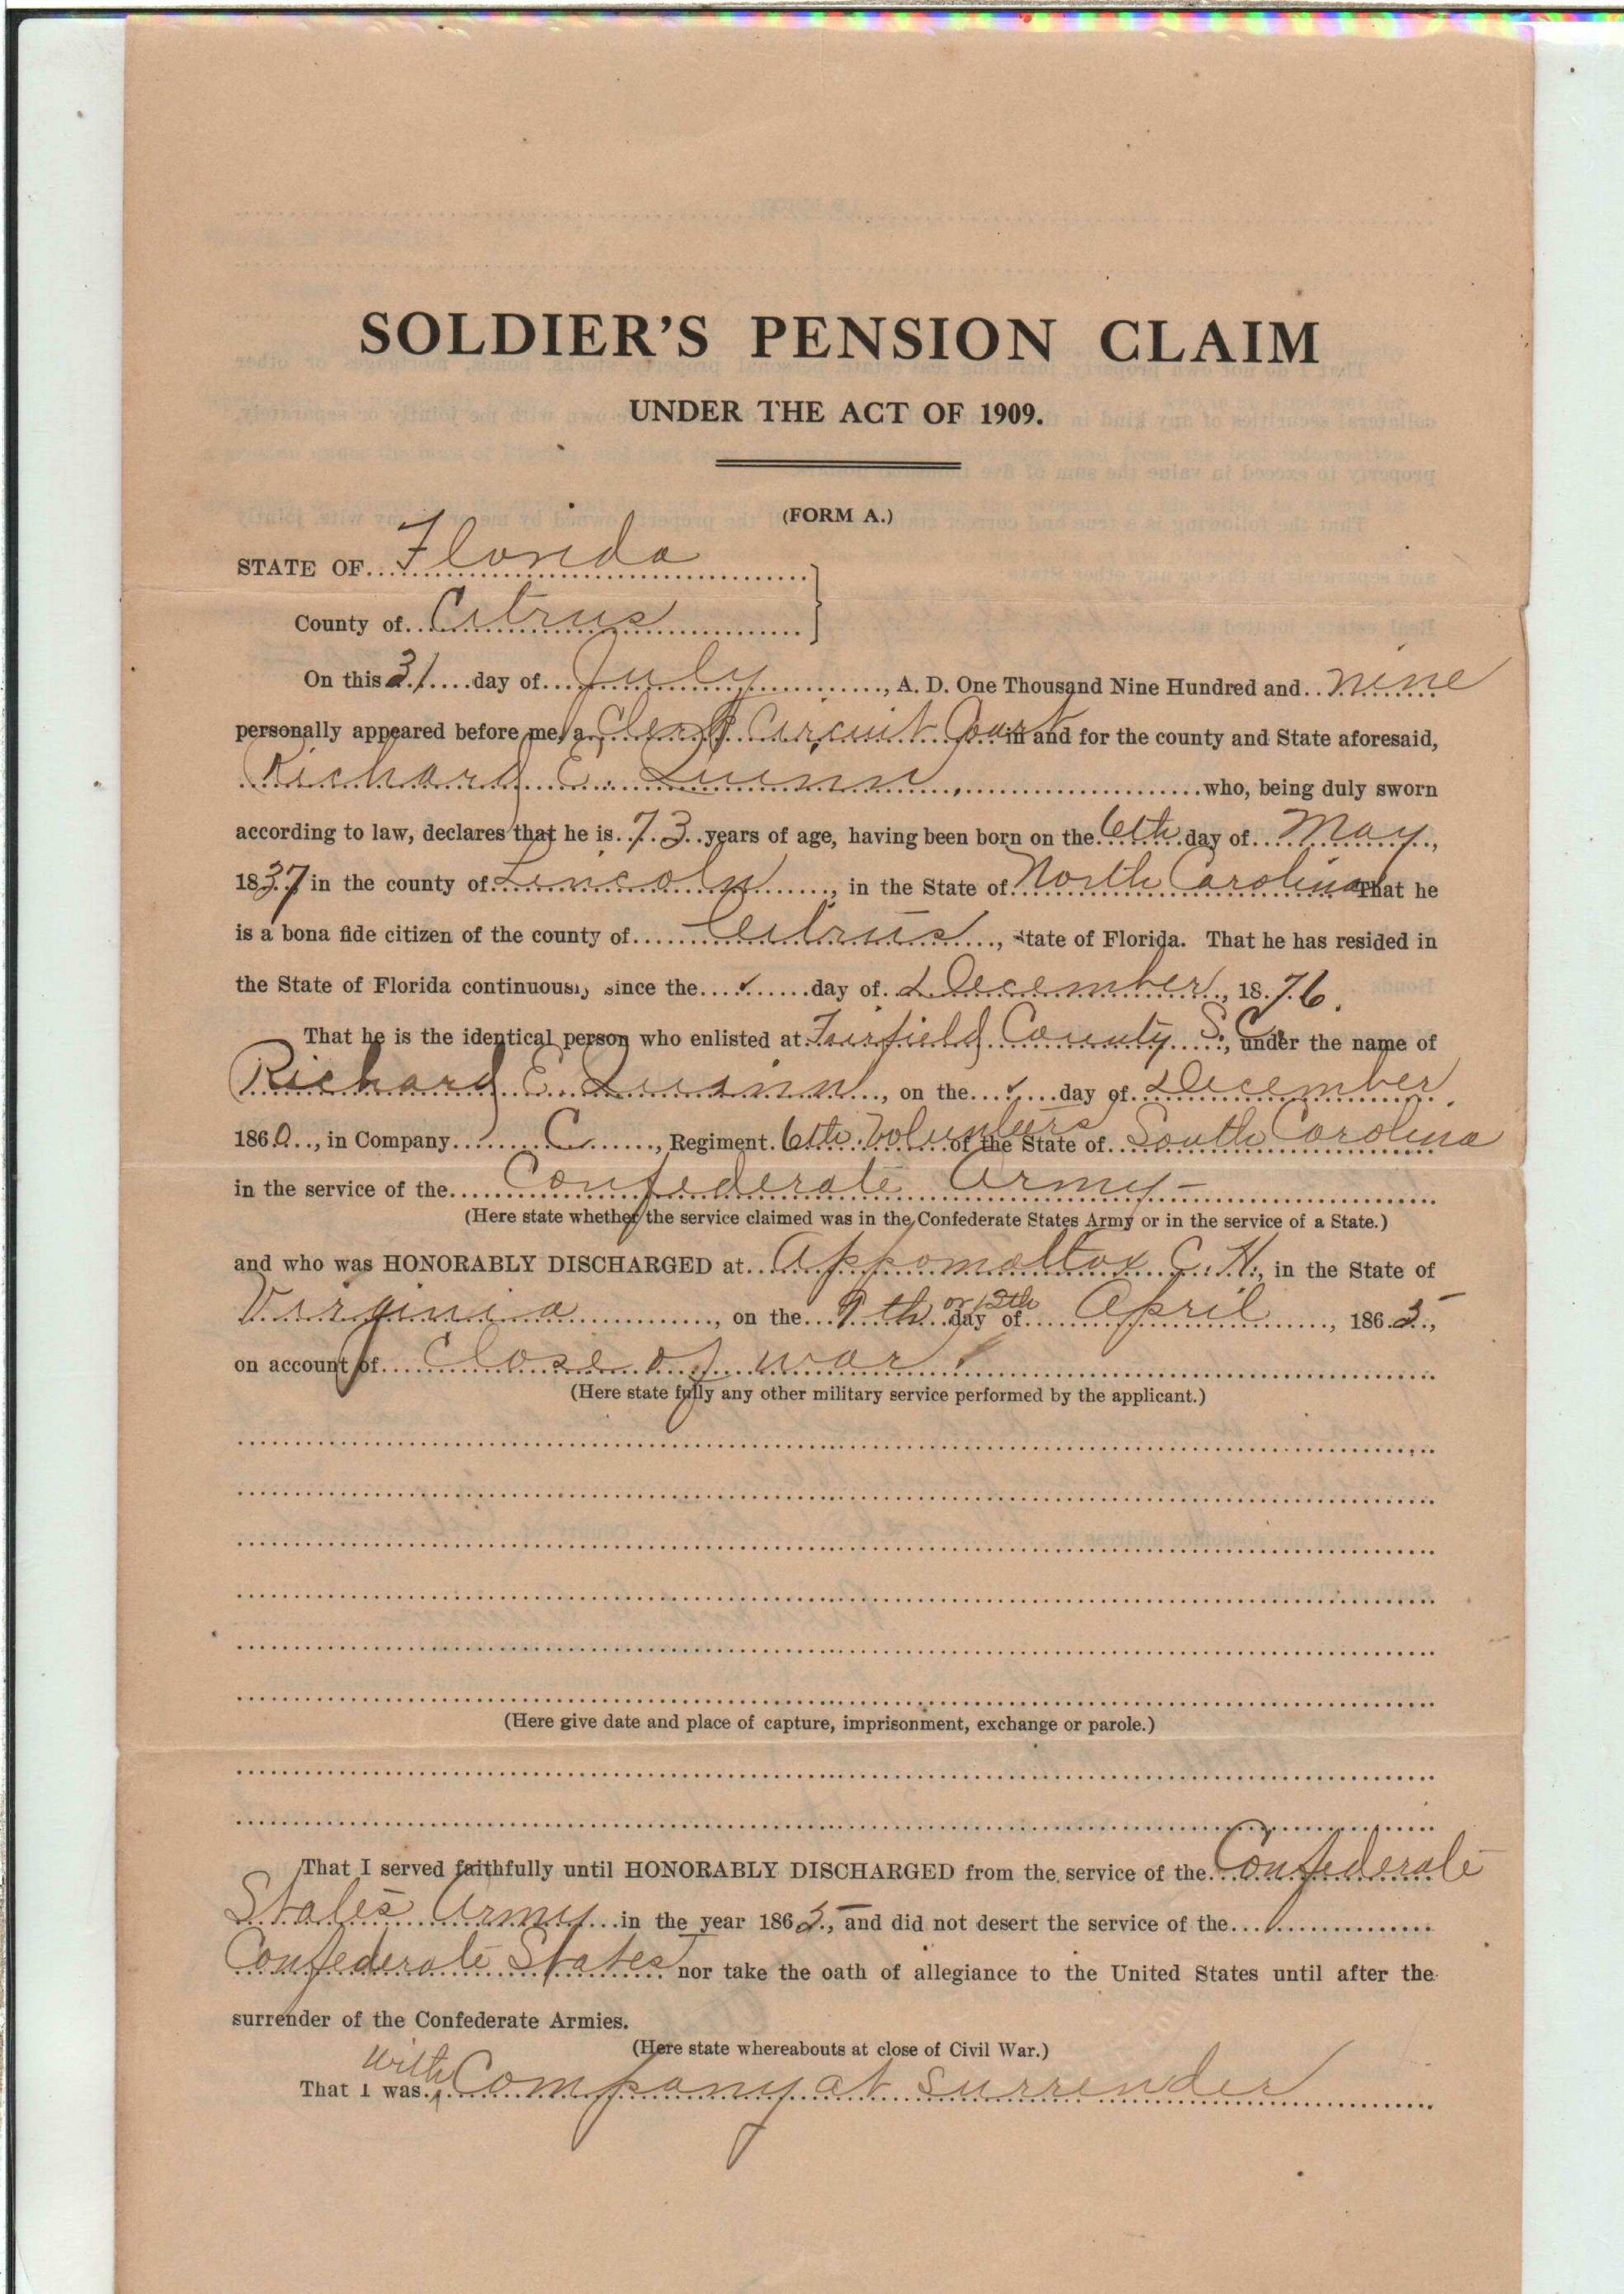 SOLDIER'S PENSION CLAIM
UNDER THE ACT OF 1909.
(FORM A.)
STATE OF Florida
County of Citrus
On this 31 day of July, A. D. One Thousand Nine Hundred and nine
personally appeared before me, a Clerk Circuit Court in and for the county and State aforesaid,
Richard E. Quinn, who, being duly sworn
according to law, declares that he is 73 years of age, having been born on the 6th day of May,
1837 in the county of Lincoln, in the State of North Carolina That he
is a bona fide citizen of the county of Citrus, State of Florida. That he has resided in
the State of Florida continuously since the day of December, 1876.
That he is the identical person who enlisted at Fairfield County S. C., under the name of
Richard E. Quinn, on the day of December
1860, in Company C, Regiment 6th Volunteers of the State of South Carolina
in the service of the Confederate Army
(Here state whether the service claimed was in the Confederate States Army or in the service of a State.)
and who was HONORABLY DISCHARGED at Appomattox C. H., in the State of
Virginia, on the 9th or 12th day of April, 1865,
on account of Close of war
(Here state fully any other military service performed by the applicant.)
(Here give date and place of capture, imprisonment, exchange or parole.)
That I served faithfully until HONORABLY DISCHARGED from the service of the Confederate
States Army in the year 1865, and did not desert the service of the
Confederate States nor take the oath of allegiance to the United States until after the
surrender of the Confederate Armies.
(Here state whereabouts at close of Civil War.)
That I was with Company at surrender